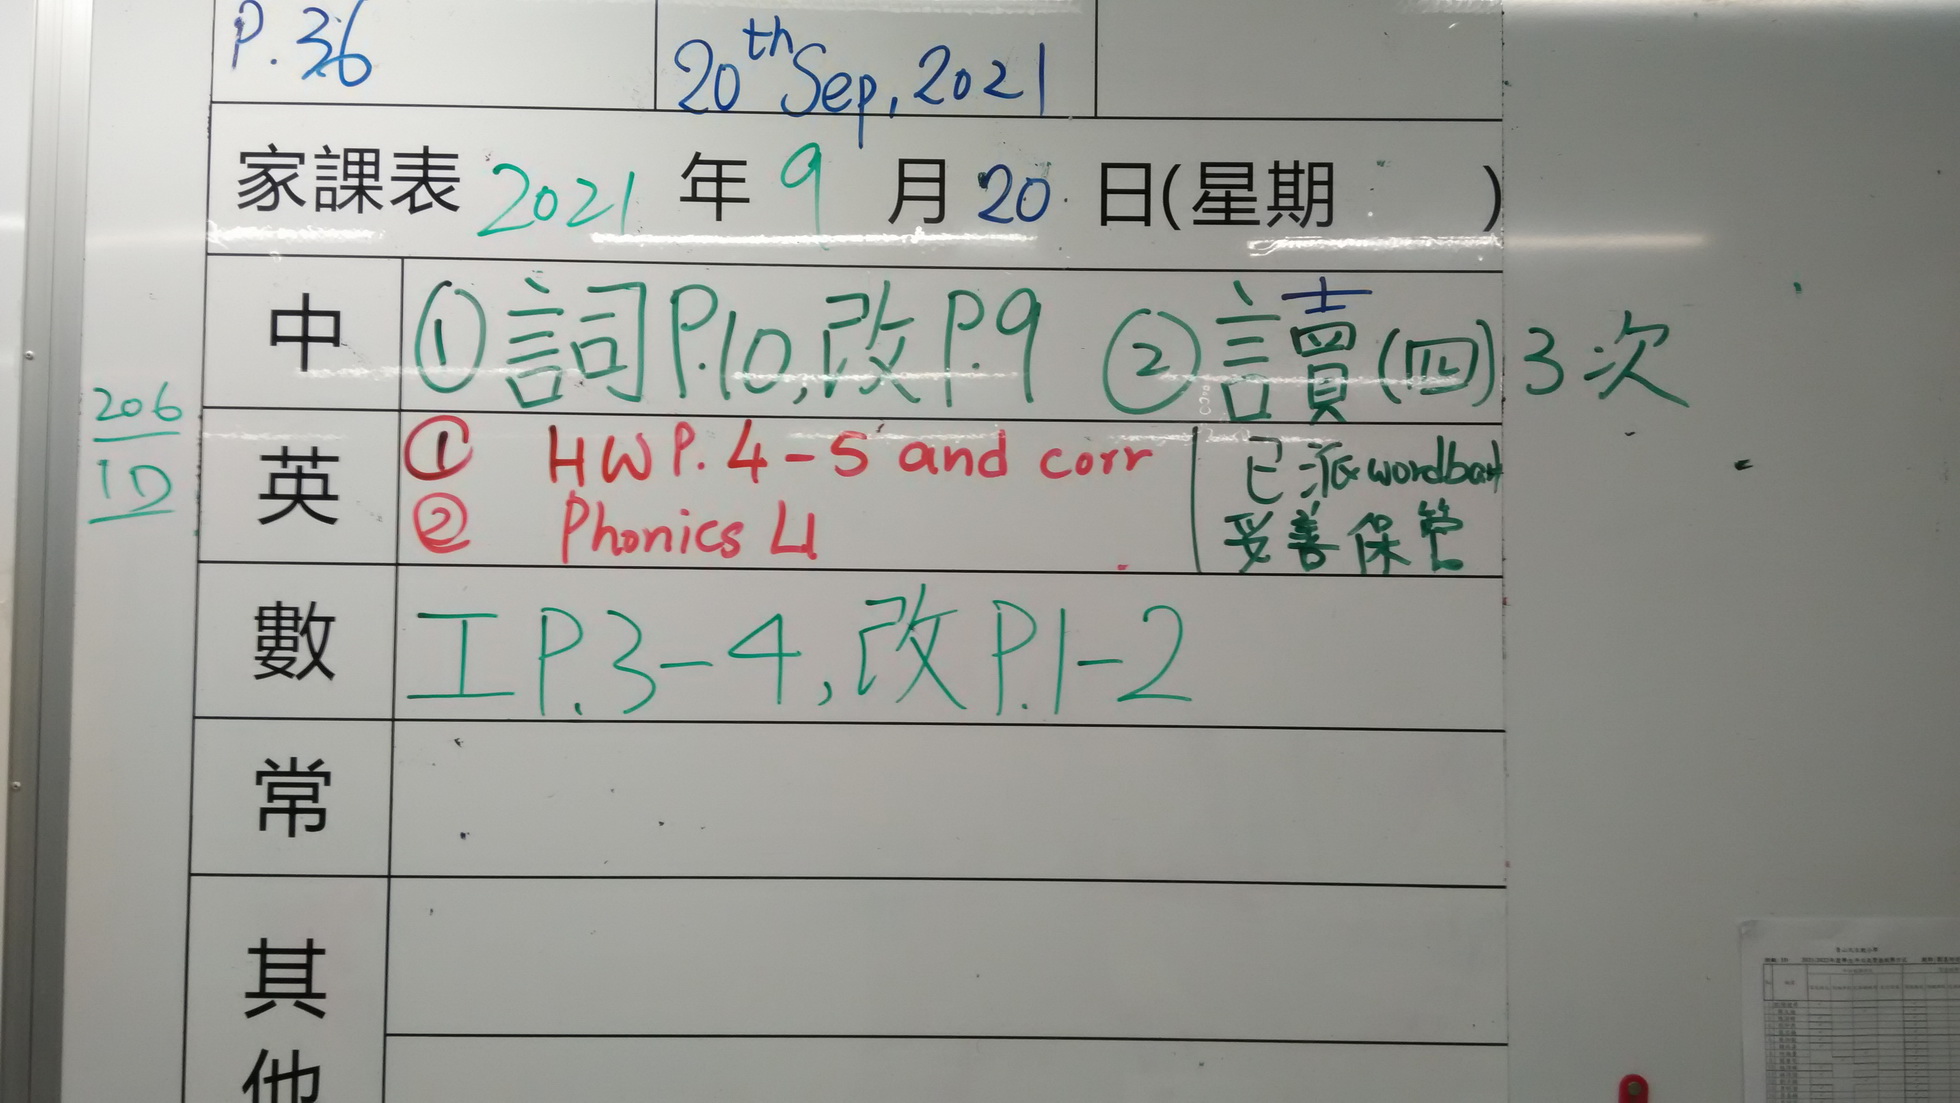 P.36
20th Sep, 2021
家課表 2021 年 9 月 20 日(星期 )
中 ①詞P.10,改P.9 ②讀(四)3次
206
1D
英 ① HW P. 4-5 and corr
② Phonics U
已派wordbank
妥善保管
數 工P.3-4,改P.1-2
常
其
他